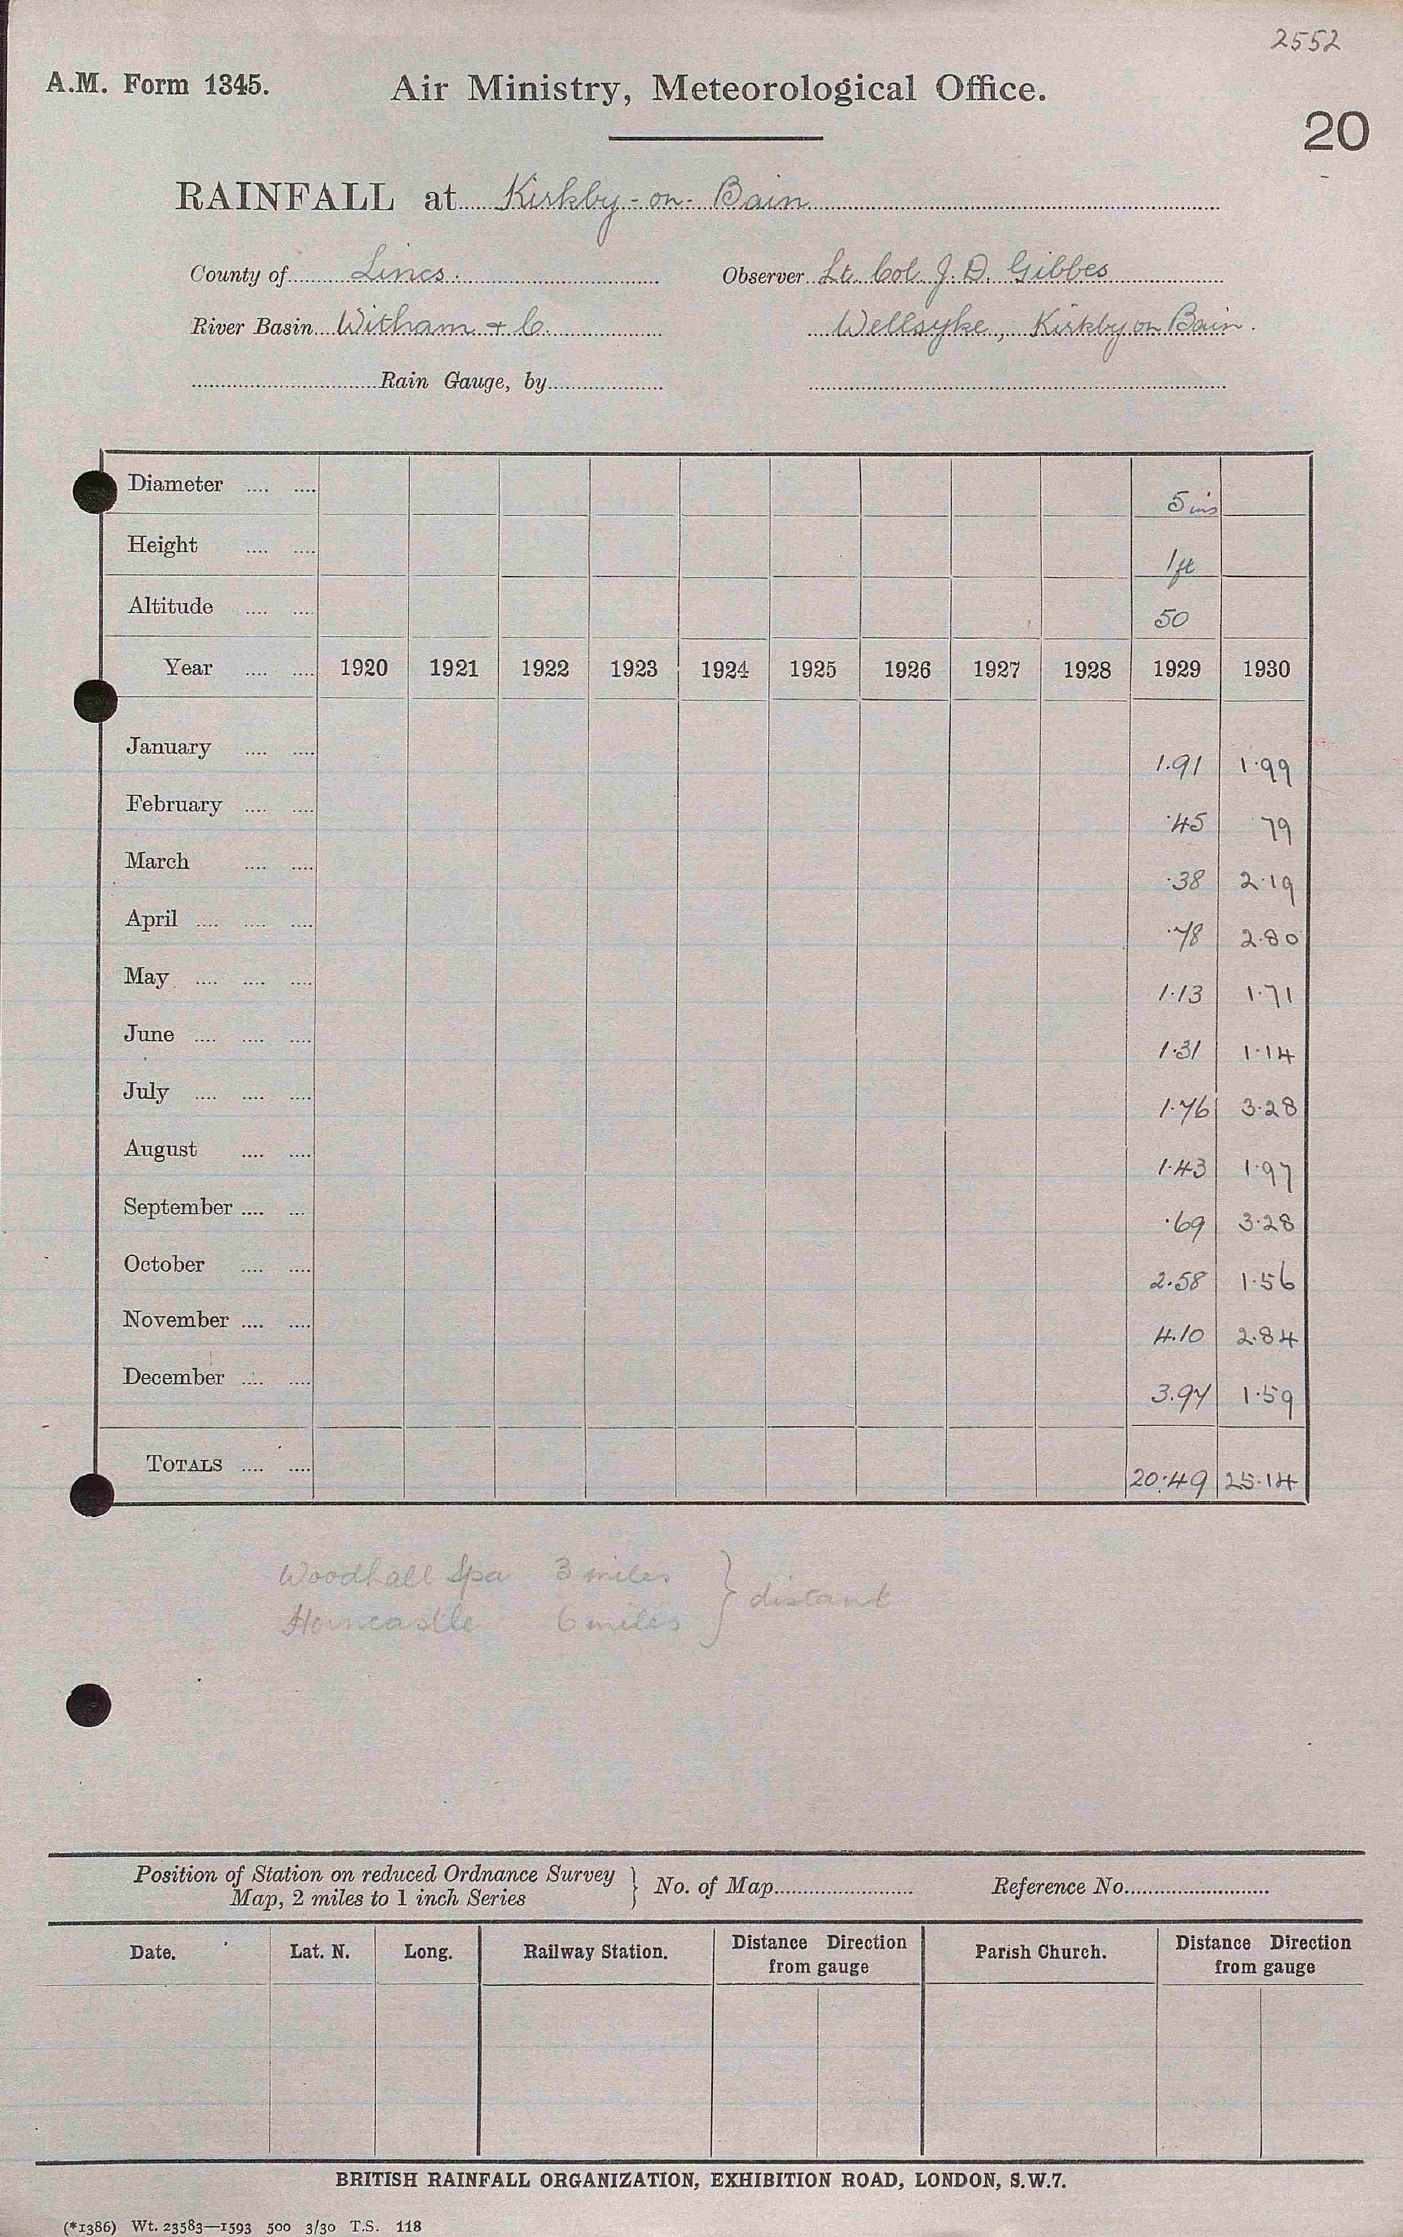 2552
A.M. Form 1345.
Air Ministry, Meteorological Office.
20
RAINFALL at Kirkby-on-Bain
County of Lincs. Observer Lt. Col. J. D. Gibbes
River Basin Witham & C. Wellsyke, Kirkby on Bain.
Rain Gauge, by
Diameter 5 ins
Height 1 ft
Altitude 50
Year 1920 1921 1922 1923 1924 1925 1926 1927 1928 1929 1930
January 1.91 1.99
February .45 79
March .38 2.19
April .78 2.80
May 1.13 1.71
June 1.31 1.14
July 1.76 3.28
August 1.43 1.97
September .69 3.28
October 2.58 1.56
November 4.10 2.84
December 3.97 1.59
TOTALS 20.49 25.14
Woodhall Spa 3 miles } distant
Horncastle 6 miles
Position of Station on reduced Ordnance Survey
Map, 2 miles to 1 inch Series } No. of Map Reference No.
Date. Lat. N. Long. Railway Station. Distance Direction from gauge Parish Church. Distance Direction from gauge
BRITISH RAINFALL ORGANIZATION, EXHIBITION ROAD, LONDON, S.W.7.
(*1386) Wt. 23583—1593 500 3/30 T.S. 118